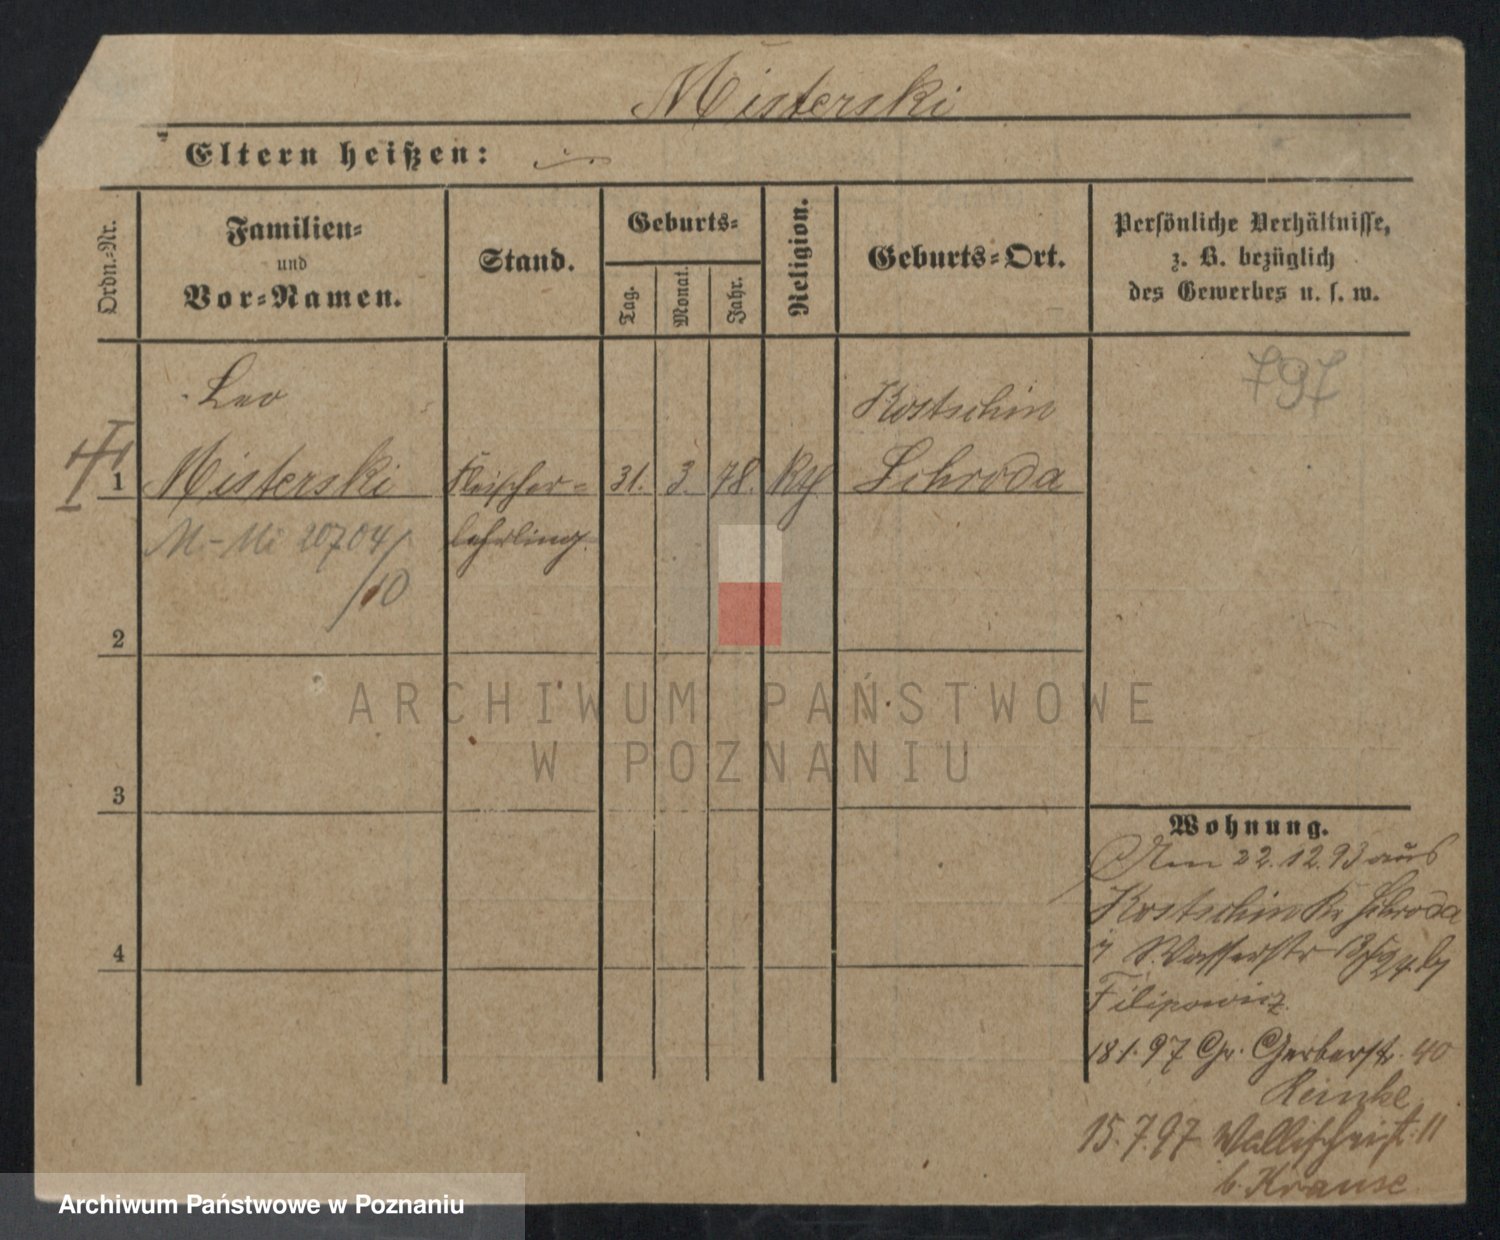 Misterski
Eltern heißen:
Ordn.-Nr.
Familien-
und
Vor-Namen.
Stand.
Geburts-
Tag.
Monat.
Jahr.
Religion.
Geburts-Ort.
Persönliche Verhältnisse,
z. B. bezüglich
des Gewerbes u. s. w.
797
Leo
Kostschin
1 Misterski Fleischer- 31. 3. 78. Kth Schroda
M.-Mi 20704/ lehrling.
/10
2
ARCHIWUM PAŃSTWOWE
W POZNANIU
3
Wohnung.
Am 22.12.93 aus
Kostschin Kr Schroda
Wasserstr
4
Filipowicz
18 1. 97 Gr. Gerberstr. 40
Reinke
15. 7. 97 Wallischeistr. 11
b. Krause
Archiwum Państwowe w Poznaniu